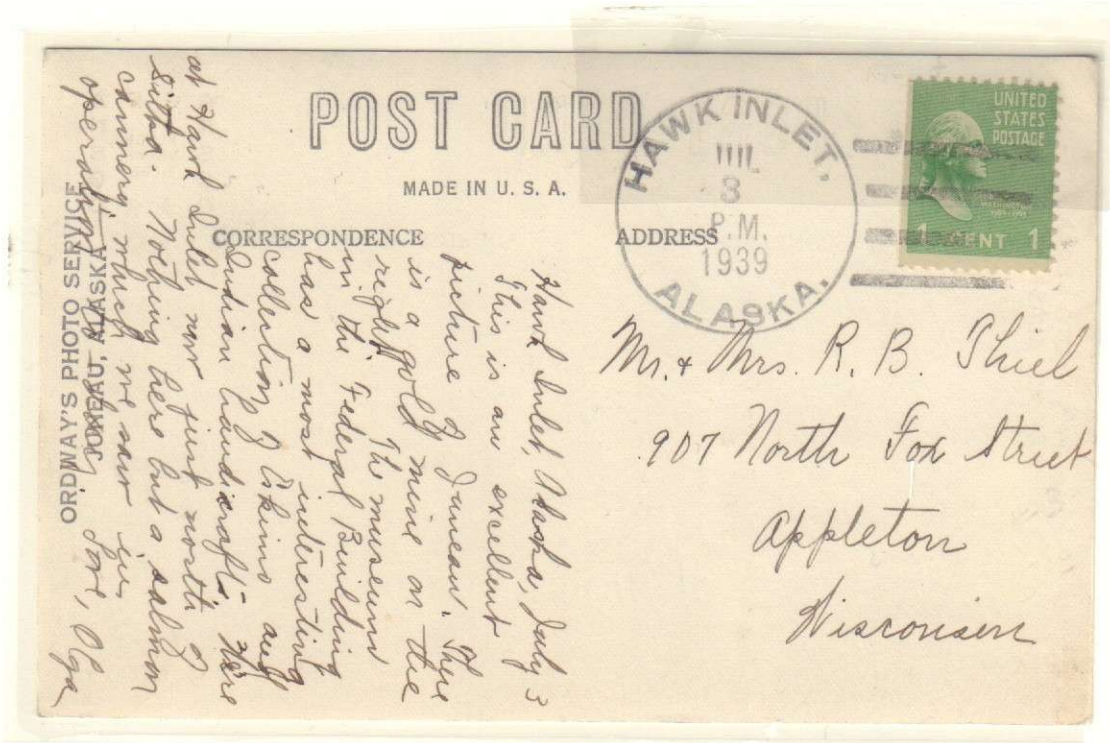 POST CARD
MADE IN U. S. A.
CORRESPONDENCE
ADDRESS
HAWK INLET,
JUL
3
P.M.
1939
ALASKA.
UNITED
STATES
POSTAGE
1 CENT 1
Hawk Inlet, Alaska, July 3
This is an excellent
picture of Juneau. There
is a gold mine on the
right. The museum
in the Federal Building
has a most interesting
collection of Eskimo and
Indian handicrafts. We're
at Hawk Inlet now just north of
Sitka. Nothing here but a salmon
cannery which we saw in
operation. Love, Olga
ORDWAY'S PHOTO SERVICE
JUNEAU, ALASKA
Mr. & Mrs. R. B. Thiel
907 North Fox Street
Appleton
Wisconsin